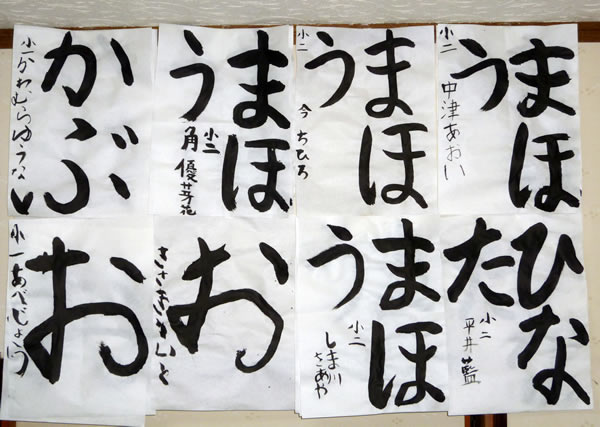 まほ
う
小二
中津あおい
まほ
う
小二
今ちひろ
まほ
う
小二
角優芽花
かぶ
小一かわむらゆうな
ひな
た
小二
平井藍
まほ
う
小二
しま川
さあや
お
お
小一あべじょう